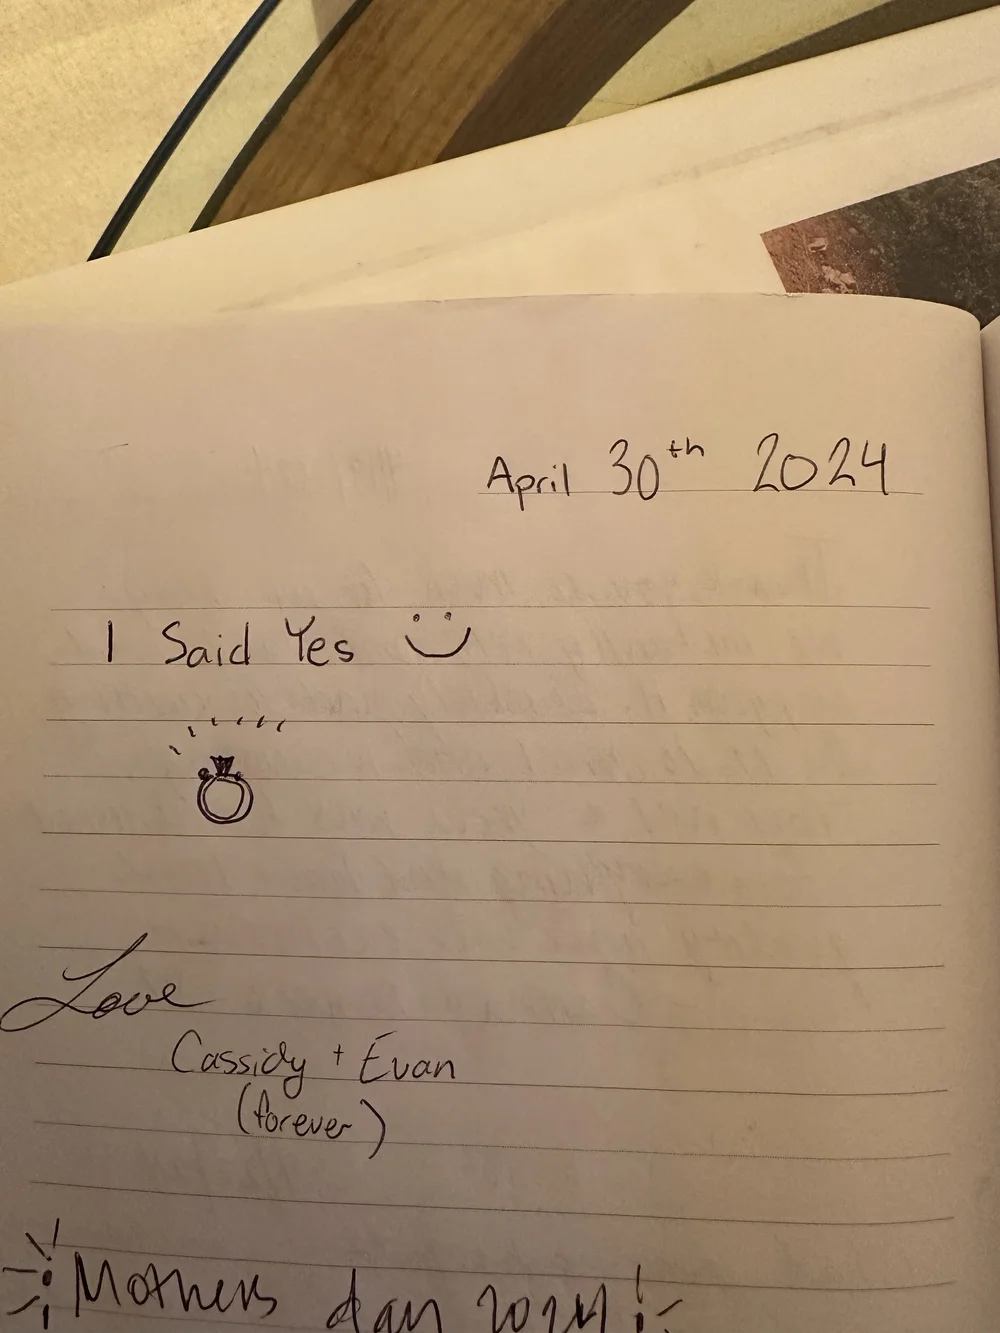 April 30th 2024
I Said Yes
Love
Cassidy + Evan
(forever)
Mothers day 2024!